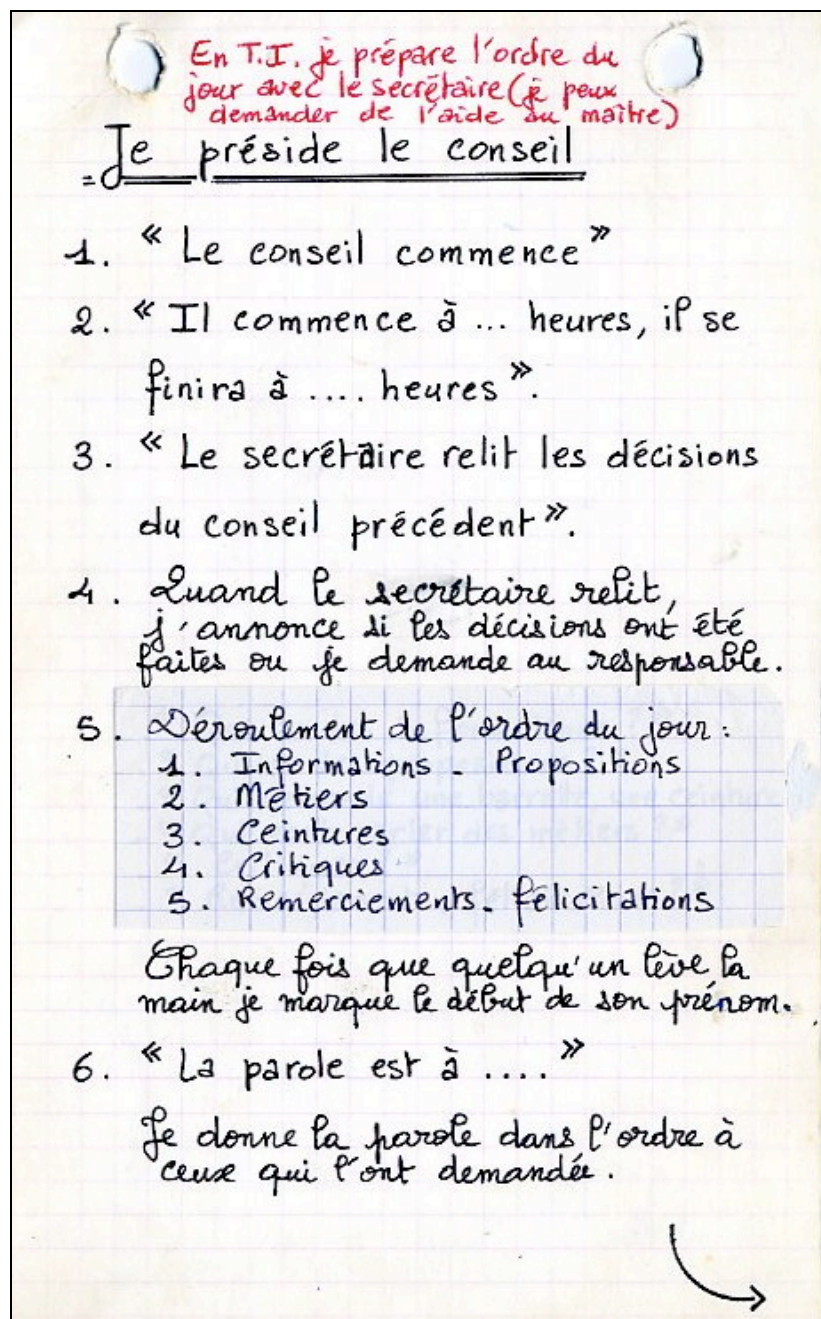 En T.I. je prépare l'ordre du
jour avec le secrétaire (je peux
demander de l'aide au maître)
Je préside le conseil
1. « Le conseil commence »
2. « Il commence à ... heures, il se
finira à .... heures ».
3. « Le secrétaire relit les décisions
du conseil précédent ».
4. Quand le secrétaire relit,
j'annonce si les décisions ont été
faites ou je demande au responsable.
5. Déroulement de l'ordre du jour :
1. Informations - Propositions
2. Métiers
3. Ceintures
4. Critiques
5. Remerciements - félicitations
Chaque fois que quelqu'un lève la
main je marque le début de son prénom.
6. « La parole est à .... »
Je donne la parole dans l'ordre à
ceux qui l'ont demandée.